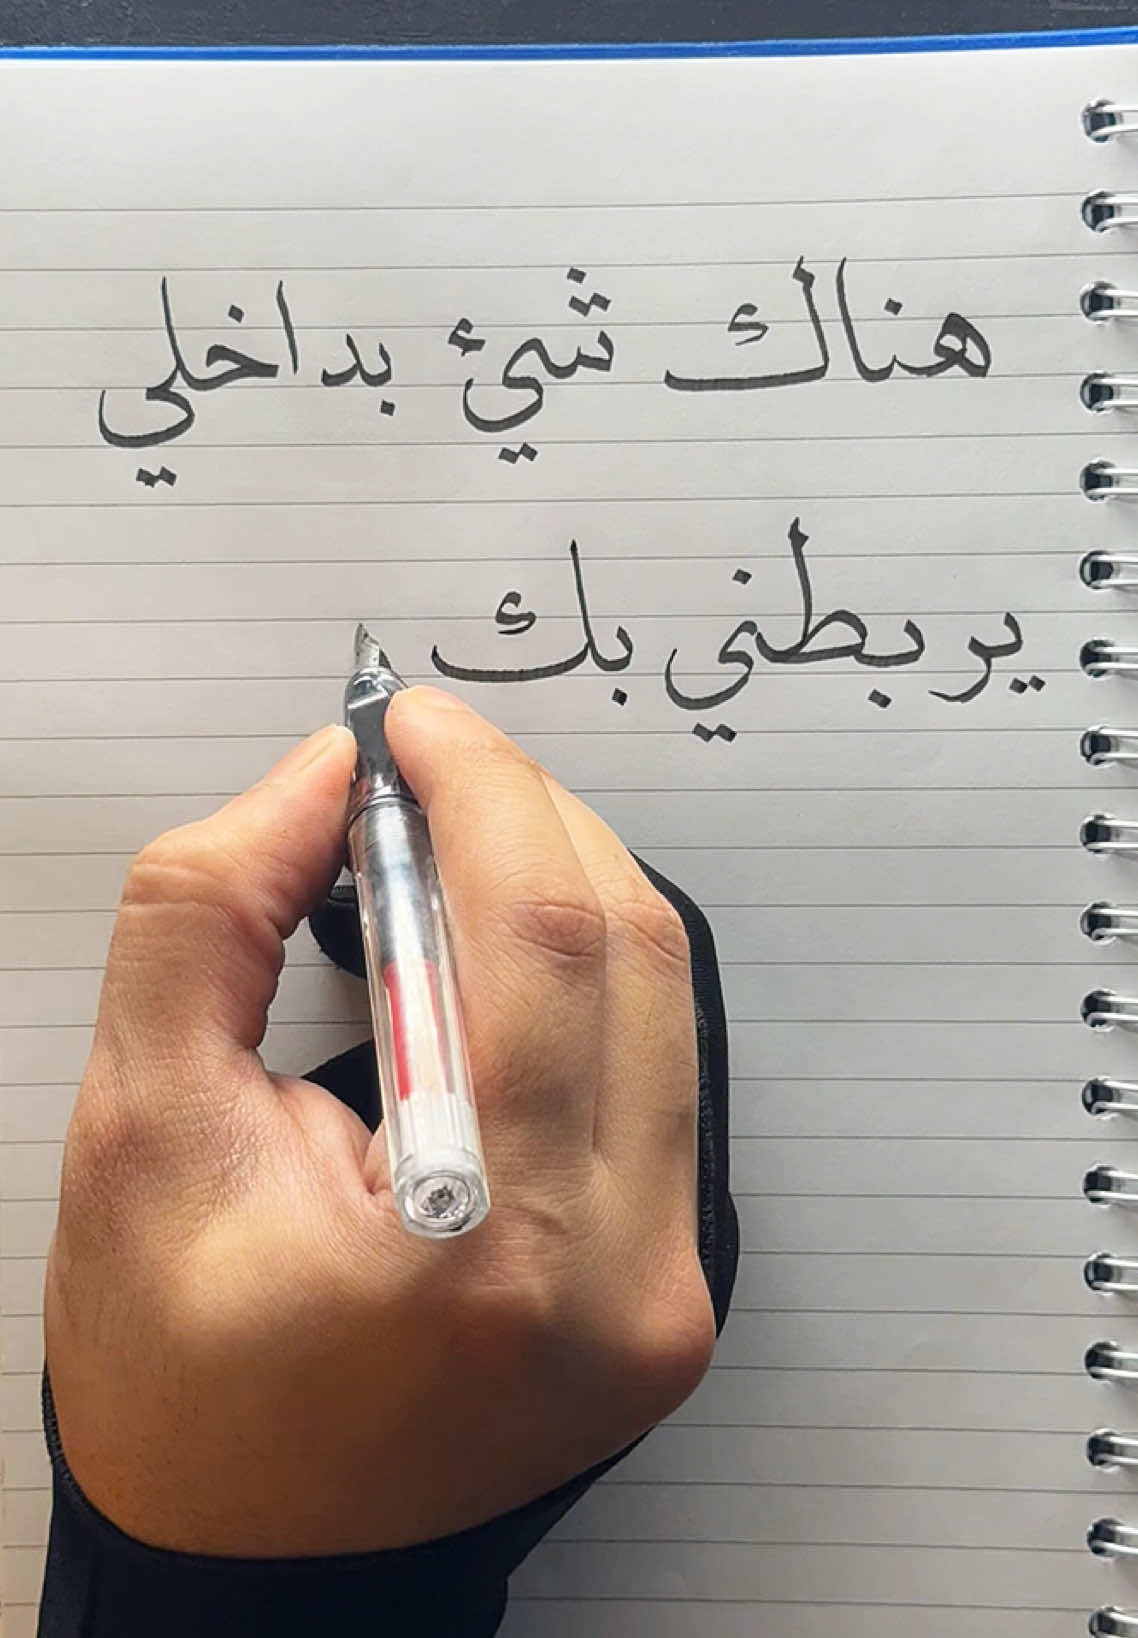 هناك شيئ بداخلي
يربطني بك